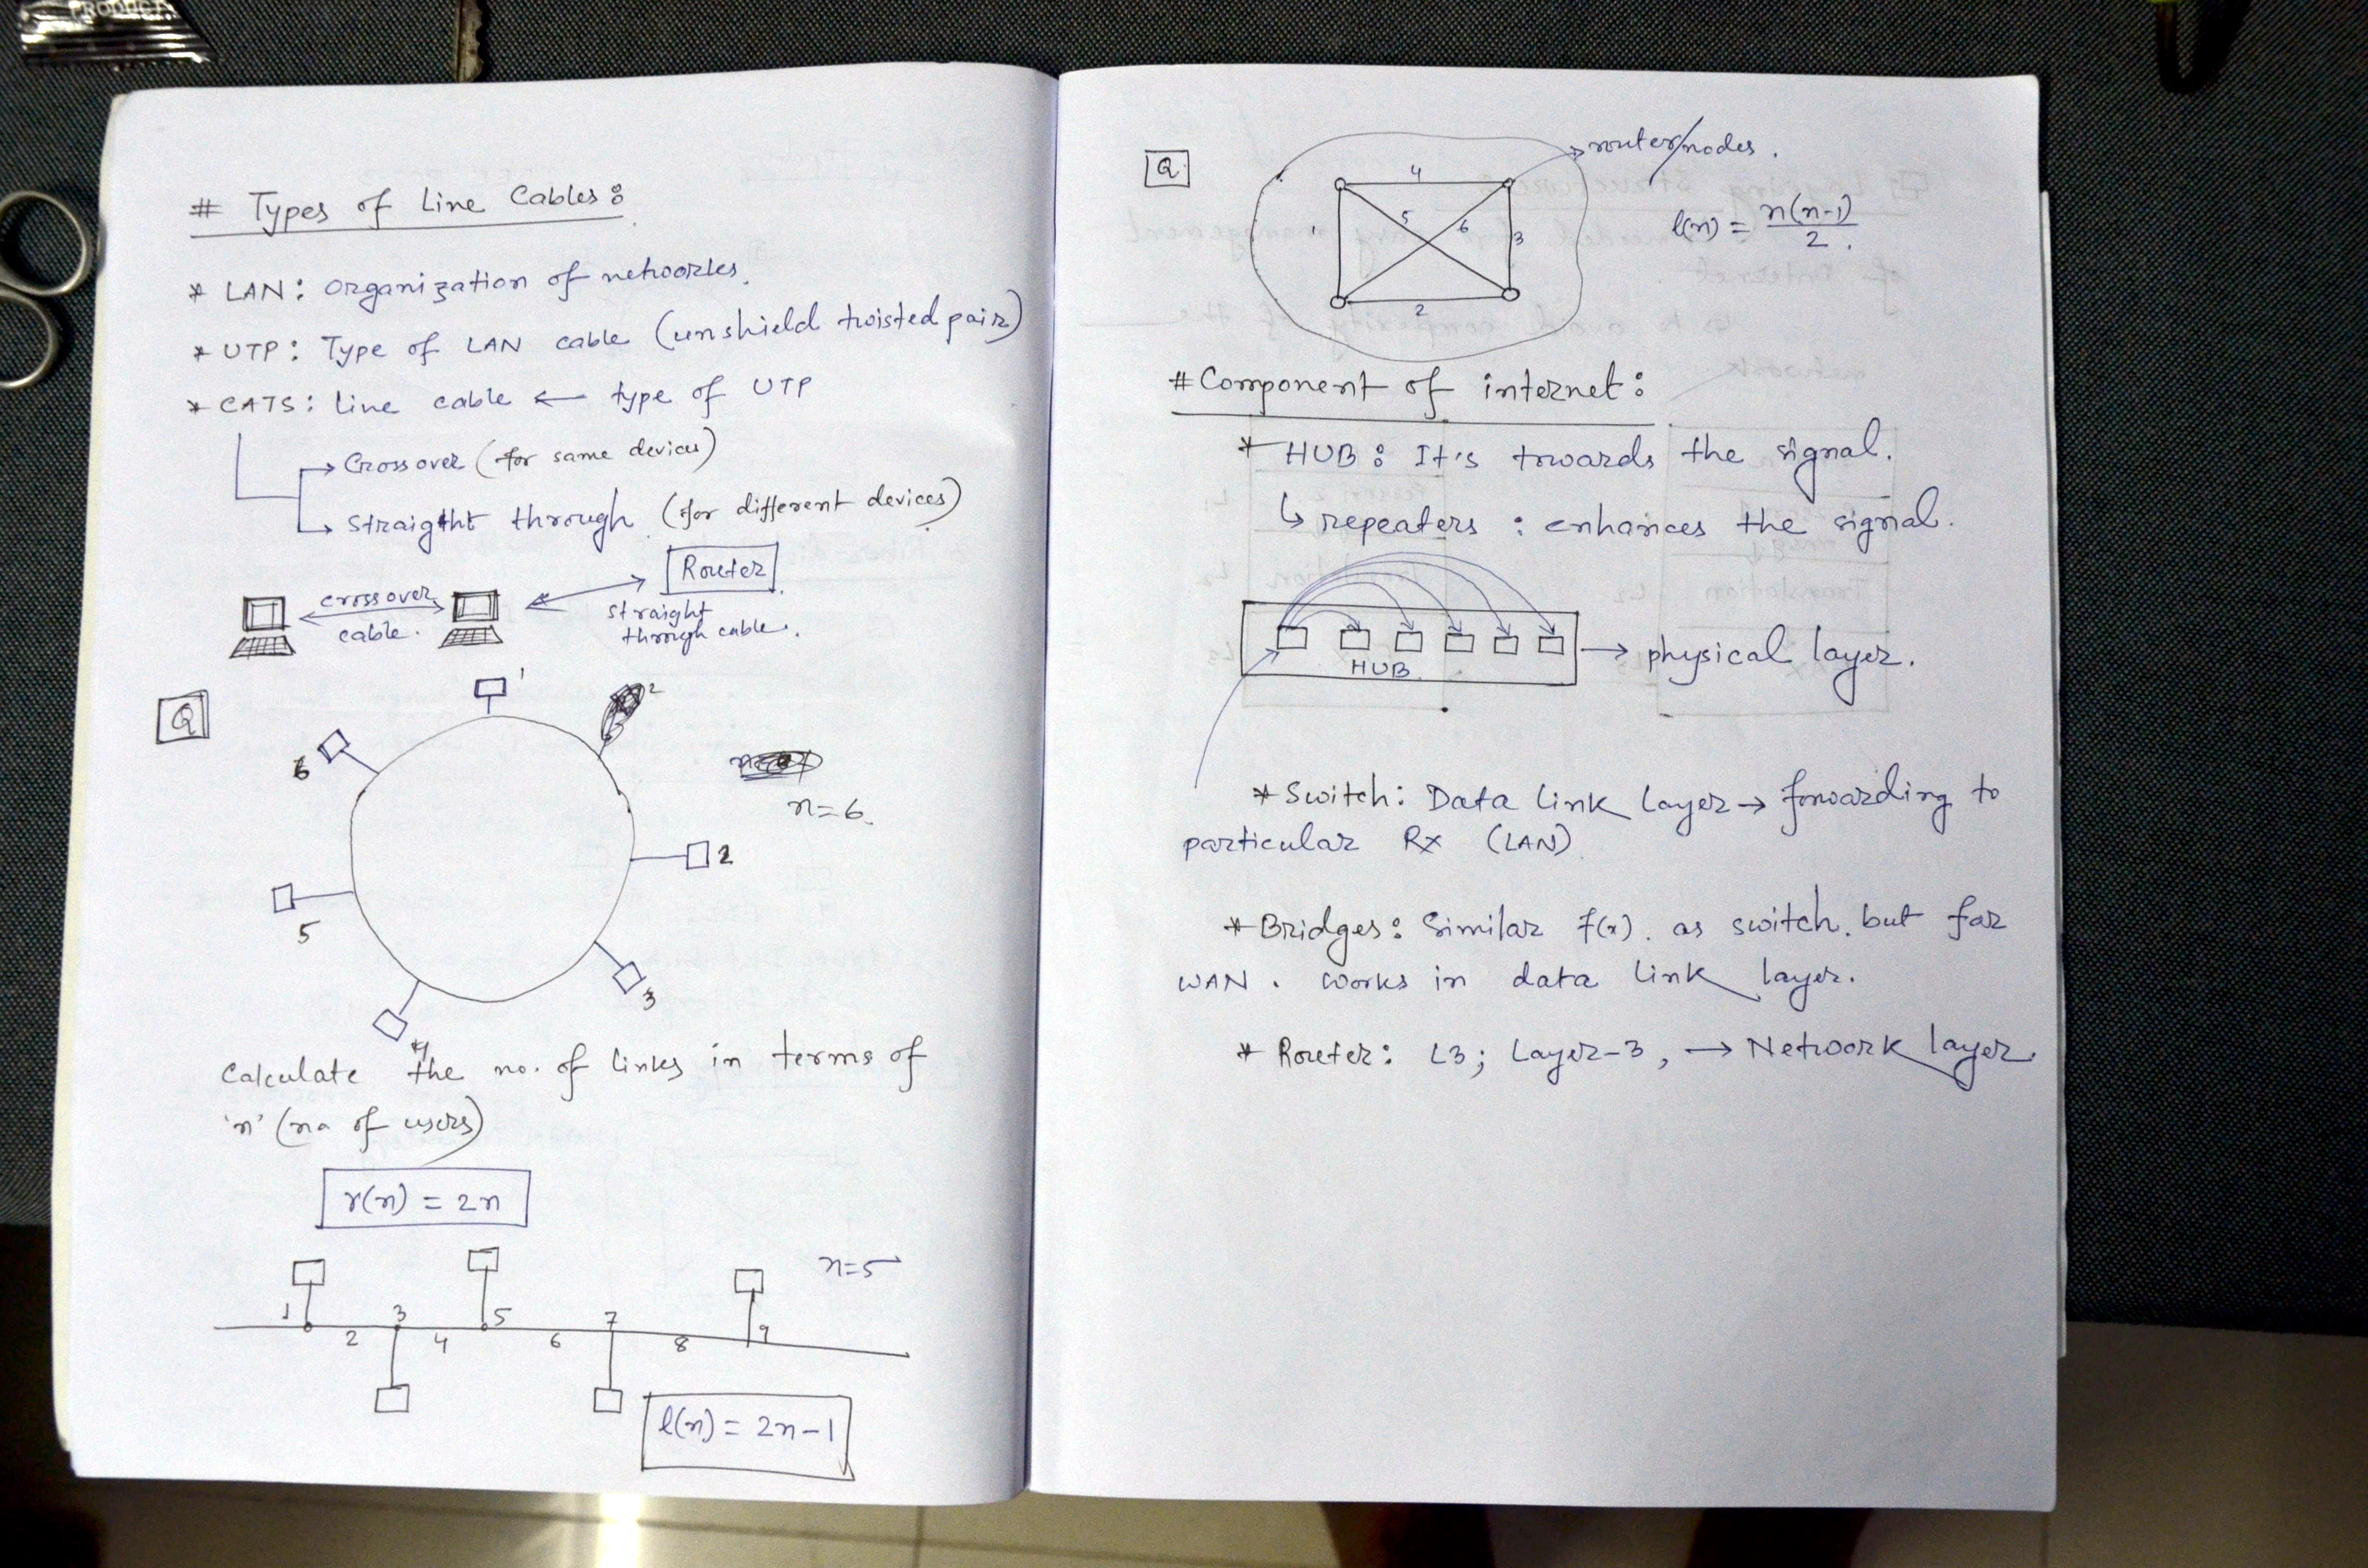 PRODUCT
# Types of Line Cables:
* LAN: organization of networks.
* UTP: Type of LAN cable (unshield twisted pair)
* CATS: line cable ← type of UTP
→ Cross over (for same devices)
→ Straight through (for different devices)
Router
cross over
cable.
straight
through cable.
Q
1
2
6
n=6.
2
5
3
4
Calculate the no. of links in terms of
'n' (no of users)
r(n) = 2n
n=5
1 2 3 4 5 6 7 8 9
l(n) = 2n-1
Q.
router/nodes.
4
1 5 6 3
2
l(n) = n(n-1)/2.
# Component of internet:
* HUB: It's towards the signal.
↳ repeaters : enhances the signal.
HUB
→ physical layer.
* Switch: Data link layer → forwarding to
particular Rx (LAN)
* Bridges: Similar f(x). as switch. but for
WAN. works in data link layer.
* Router: L3; Layer-3, → Network layer.